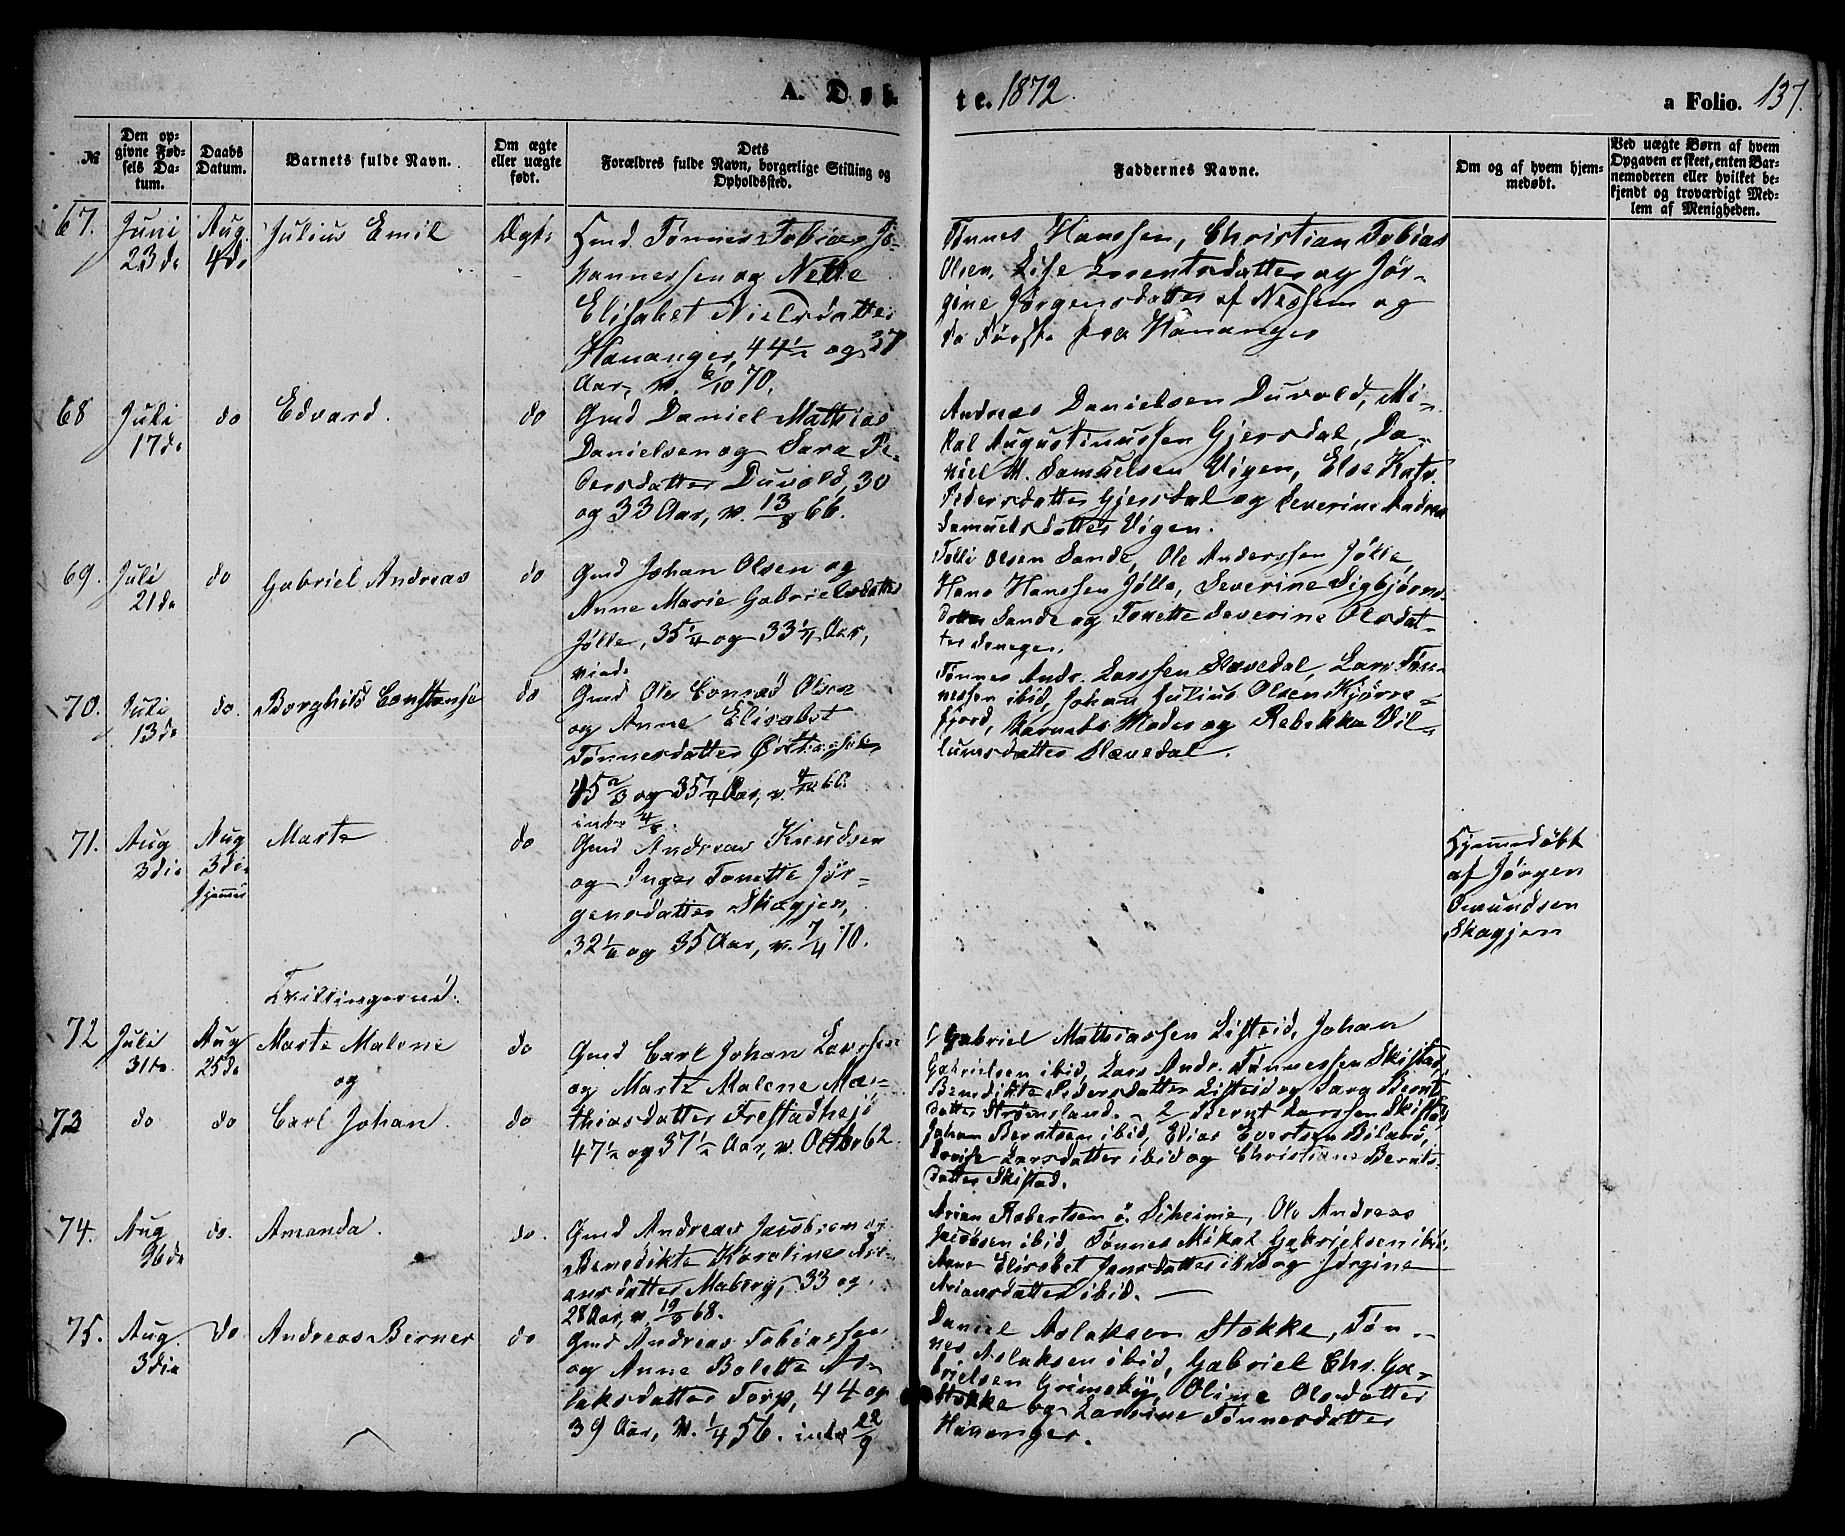 A. Døb
te. 1872.
a Folio. 137.
№
Den op-
givne Fød-
sels Da-
tum.
Daabs
Datum.
Barnets fulde Navn.
Om ægte
eller uægte
født.
Dets
Forældres fulde Navn, borgerlige Stilling og
Opholdssted.
Faddernes Navne.
Om og af hvem hjem-
medøbt.
Ved uægte Børn af hvem
Opgaven er skeet, enten Bar-
nemoderen eller hvilket be-
kjendt og troværdigt Med-
lem af Menigheden.
67.
Juni
23de
Aug.
4de
Julius Emil
Ægte
Gmd. Tønnes Tobias Jo-
hannessen og
Elisabet Nielsdatter
Hananger, 44½ og 37
Aar, v. 6/10 70.
Tønnes Hanssen, Christian Tobias
Olsen, Lise Lorentsdatter og Jør-
gine Jørgensdatter af Nesheim og
de første fra Hananger
68
Juli
17de
do
Edvard.
do
Gmd Daniel Mathias
Danielsen og Sara Pe-
dersdatter Duvold, 30
og 33 Aar, v. 13/8 66.
Andreas Danielsen Duvold, Mi-
kal Augustinussen Gjersdal, Da-
niel M. Samuelsen Vigen, Else Katr.
Pedersdatter Gjersdal og Severine Andrea
Samuelsdatter Vigen.
69.
Juli
21de
do
Gabriel Andreas
do
Gmd Johan Olsen og
Anne Marie Gabrielsdatter
Jølle, 35¼ og 33¼ Aar,
Tolli Olsen Sande, Ole Anderssen Jølle,
Hans Hanssen Jølle, Severine Sigbjørns-
datter Sande og Tonette Severine Olsdat-
ter
70.
Juli
13de
do.
Borghild Constanse
do
Gmd Ole Conrad Olsen
og Anne Elisabet
Tønnesdatter
45⅔ og 35 Aar, v. 60.
Tønnes Andr. Larssen Slævedal, Lars Tøn-
nessen ibid, Johan Julius Olsen Kjørre-
fjord, Barnets Moder og Rebekka Vil-
lumsdatter Slævedal.
71.
Aug
3die
Aug
3die
hjemme
Marte
do
Gmd Andreas Knudsen
og Inger Tonette Jør-
gensdatter Skagjen,
32 og 35 Aar, v. 7/4 70.
Hjemmedøbt
af Jørgen
Omundsen
Skagjen
Tvillingerne:
72
Juli
31te.
Aug
25de
Marte Malene
og
do
Gmd Carl Johan Larssen
og Marte Malene Ma-
thiasdatter Frestadheja
47½ og 37½ Aar, v. Octbr 62.
1 Gabriel Mathiassen Listeid, Johan
Gabrielsen ibid, Lars Andr. Tønnessen Skistad,
Benedikte Pedersdatter Listeid og Sara Bernt
datter Strømsland. – 2 Bernt Larssen Skistad,
Johan Berntsen ibid, Elias Evertsen Biland,
Lovise Larsdatter ibid og Christiane Bernts-
datter Skistad.
73
do
do
Carl Johan.
do
74.
Aug
do.
Amanda.
do.
Gmd Andreas Jacobsen og
Benedikte Karoline Ari-
ansdatter Maberg, 33 og
28 Aar, v. 68.
Arian Robertsen ø. Siheime, Ole Andreas
Jacobsen ibid, Tønnes Mikal Gabrielsen ibid,
Anne Elisabet Jansdatter ibid og Jørgine
Ariansdatter ibid. —
75.
Aug
3die
do
Andreas Berner
do
Gmd Andreas Tobiassen
og Anne Bolette As-
laksdatter Torp, 44 og
39 Aar, v. 1/4 56. indr 22/9
Daniel Aslaksen Stokke, Tøn-
nes Aslaksen ibid, Gabriel Chr. Ga-
brielsen Grimsby, Oline Olsdatter
Stokke og Tønnesdatter
Hananger.